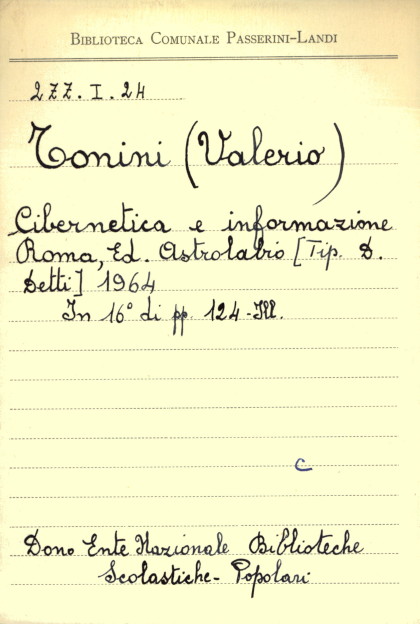 BIBLIOTECA COMUNALE PASSERINI-LANDI
2ZZ.I.24
Tonini (Valerio)
Cibernetica e informazione
Roma, Ed. Astrolabio [Tip. D.
Detti] 1964
In 16° di pp. 124-Ill.
C
Dono Ente Nazionale Biblioteche
Scolastiche-Popolari